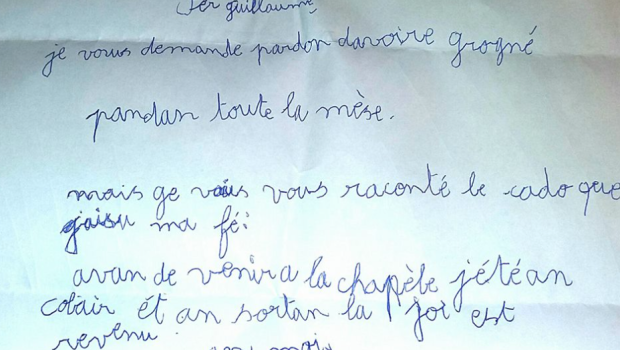 guillaume,
je vous demande pardon davoire grogné
pandan toute la mèse.
mais ge vais vous raconté le cado que
jaisu ma fé:
avan de venir a la chapèle j'étéan
colair ét an sortan la joi est
revenu